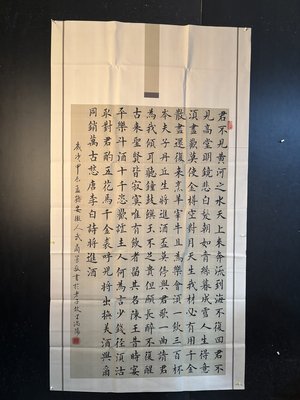 君不見黄河之水天上來奔流到海不復回君不
見高堂明鏡悲白髮朝如青絲暮成雪人生得意
須盡歡莫使金樽空對月天生我材必有用千金
散盡還復來烹羊宰牛且為樂會須一飲三百杯
岑夫子丹丘生將進酒杯莫停與君歌一曲請君
為我傾耳聽鐘鼓饌玉不足貴但願長醉不復醒
古來聖賢皆寂寞惟有飲者留其名陳王昔時宴
平樂斗酒十千恣歡謔主人何為言少錢徑須沽
取對君酌五花馬千金裘呼兒將出換美酒與爾
同銷萬古愁唐李白詩將進酒
歲次甲午孟